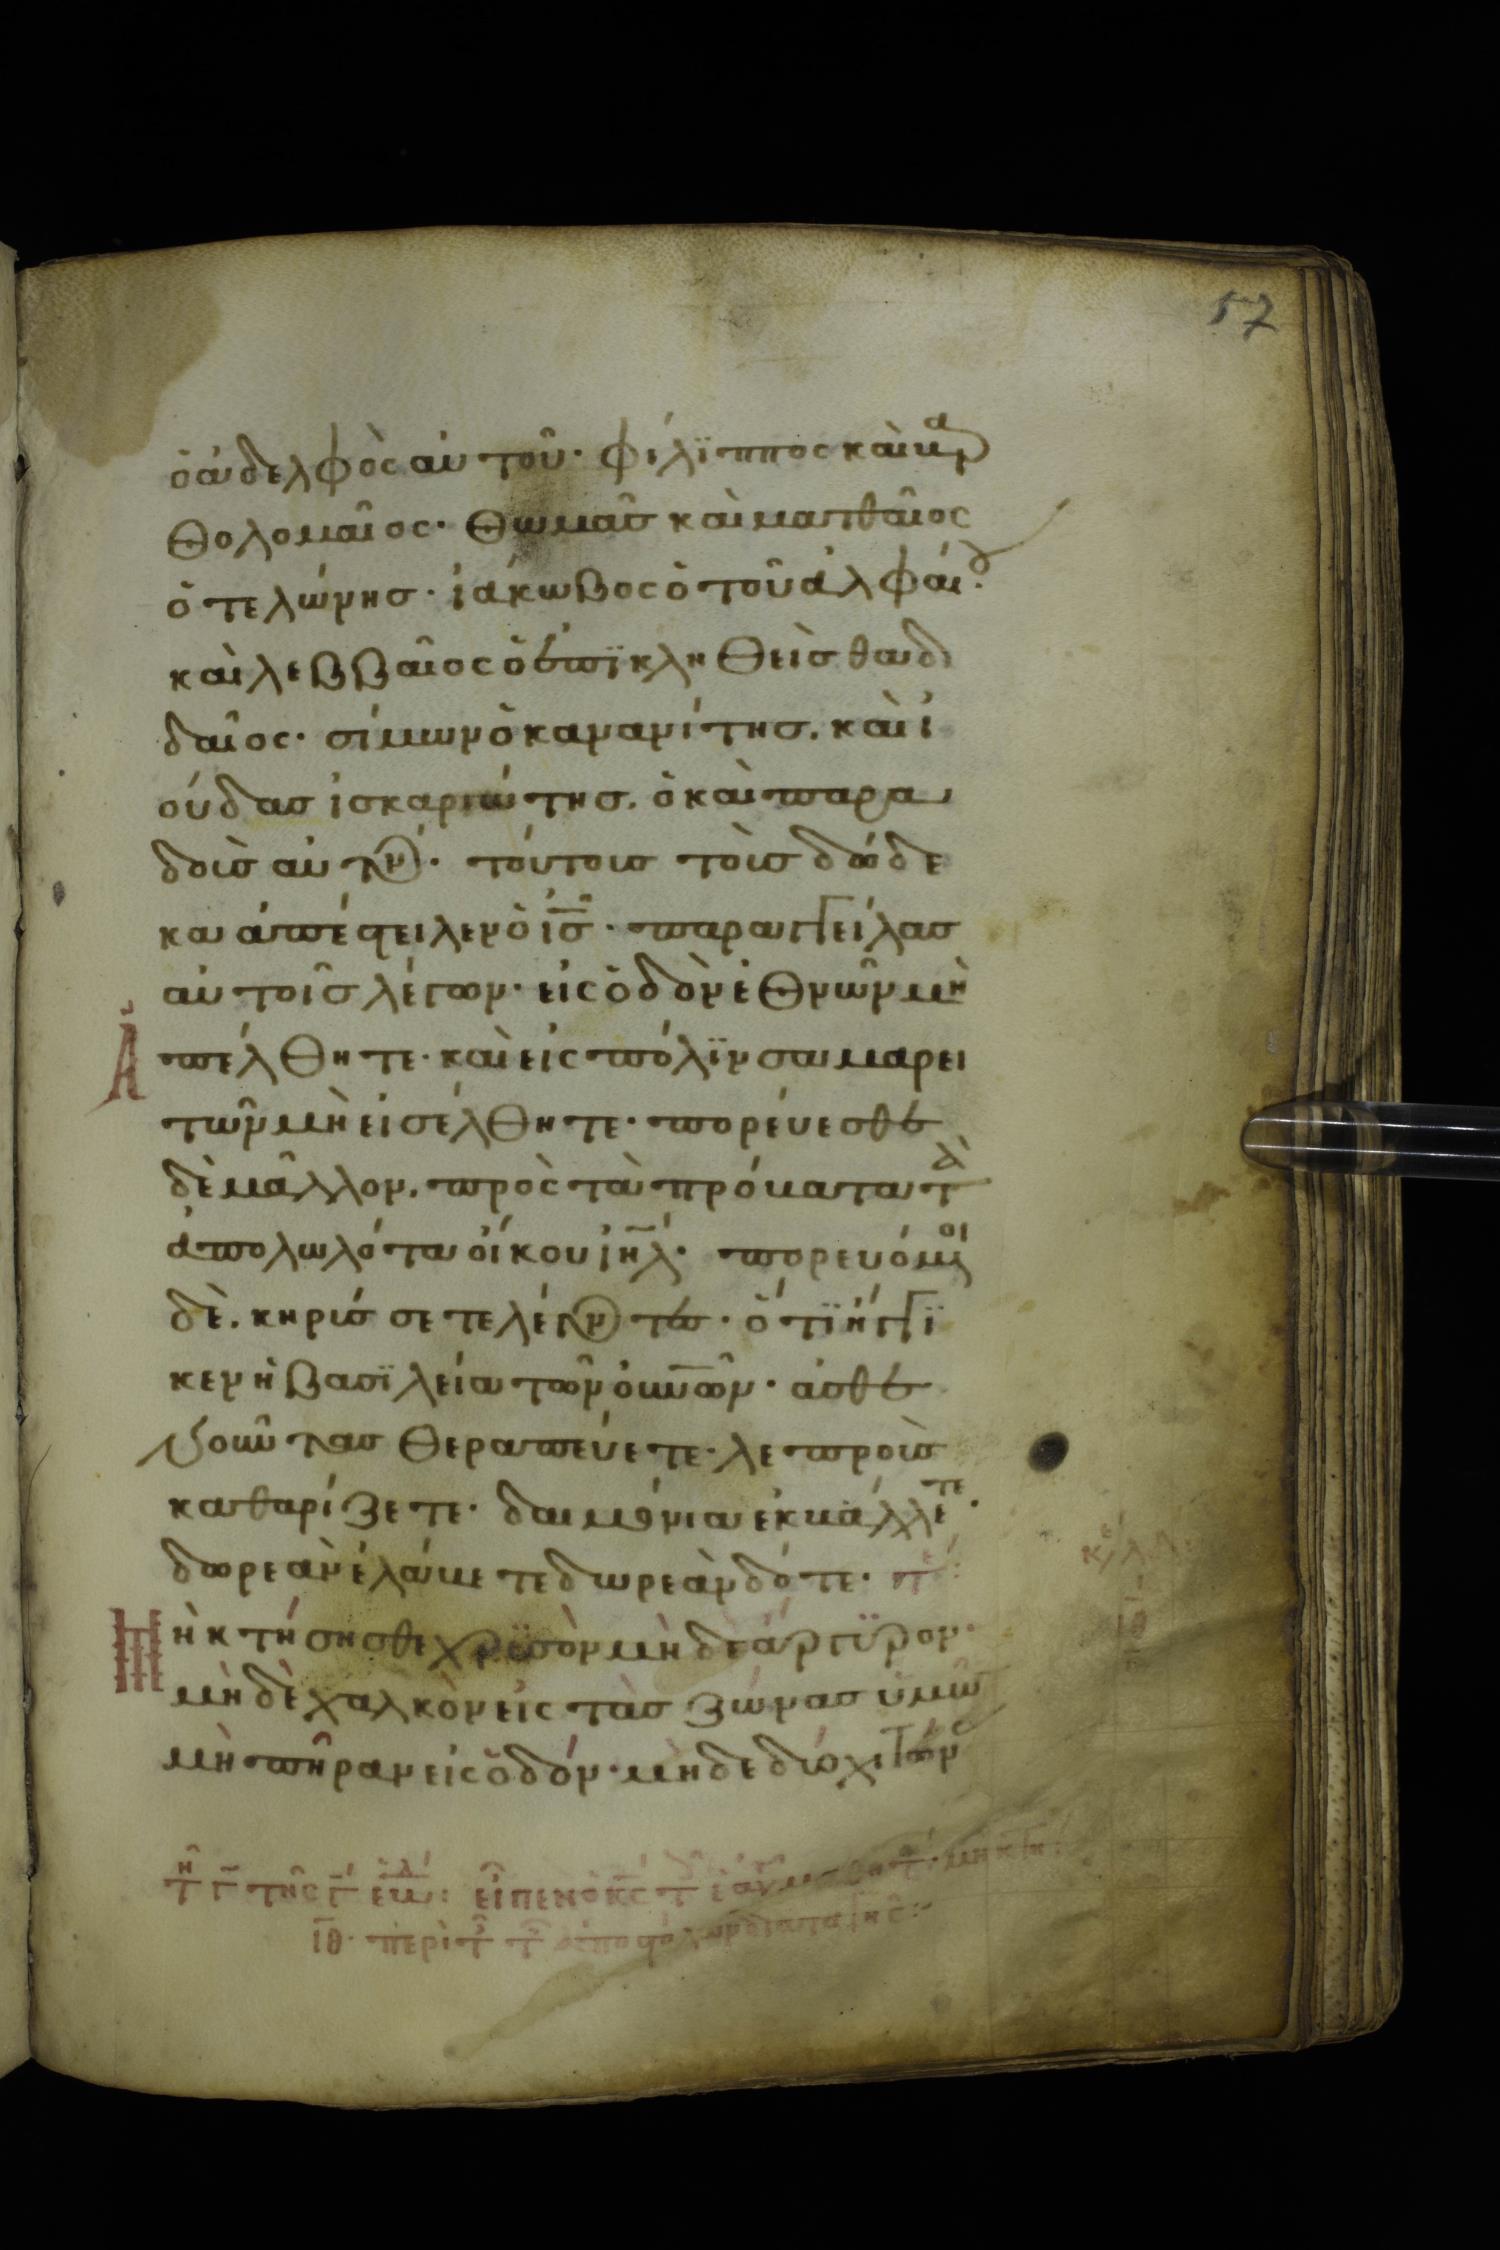 57
ὁ ἀδελφὸς αὐτοῦ· φίλϊππος καὶ βαρ
θολομαῖος· Θωμᾶσ καὶματθαῖος
ὁ τελώνησ· ἰάκωβος ὁ τοῦ ἀλφαίου·
καὶ λεββαῖος ὁ ἐπϊκληθεὶσ θαδ
δαῖος· σίμων ὁ κανανίτησ. καὶ ἰ
ούδασ ἰσκαριώτησ. ὁ καὶ παρα
δοὺσ αὐτόν· τούτουσ τοὺσ δώδε
κα ἀπέστειλεν ὁ ι̅σ̅· παραγγείλασ
αὐτοῖσ λέγων· εἰς ὁδὸν ἐθνῶν μὴ
ἀπέλθητε· καὶ εἰς πόλϊν σαμαρει
τῶν μὴ εἰσέλθητε· πορεύεσθε
δὲ μᾶλλον. πρὸς τὰ πρόβατα τὰ
ἀπολωλότα οἴκου ἰη̅λ· πορευόμενοι
δὲ. κηρύσσετε λέγοντες· ὅτϊ ἤγγϊ
κεν ἡ βασϊλεία τῶν ουνῶν· ἀσθε
νοῦντασ θεραπεύετε· λεπροὺσ
καθαρίζετε· δαιμόνια ἐκβάλλετε·
δωρεὰν ἐλάβετε δωρεὰν δότε· τέ:
Μὴ κτήσησθε χρϋσὸν μὴ δὲ ἄργϋρον·
μὴ δὲ χαλκὸν εἰς τὰσ ζώνασ ὑμῶν
μὴ πήραν εἰς ὁδόν· μὴ δὲ δύο χιτῶν
τῇ γ̅ τῆς γ̅ ἑβδ: εἶπεν ὁ κ̅ς̅ τ
ιθ· περὶ τῆς τῶν ἀποστόλων διαταγῆς:
ιθ